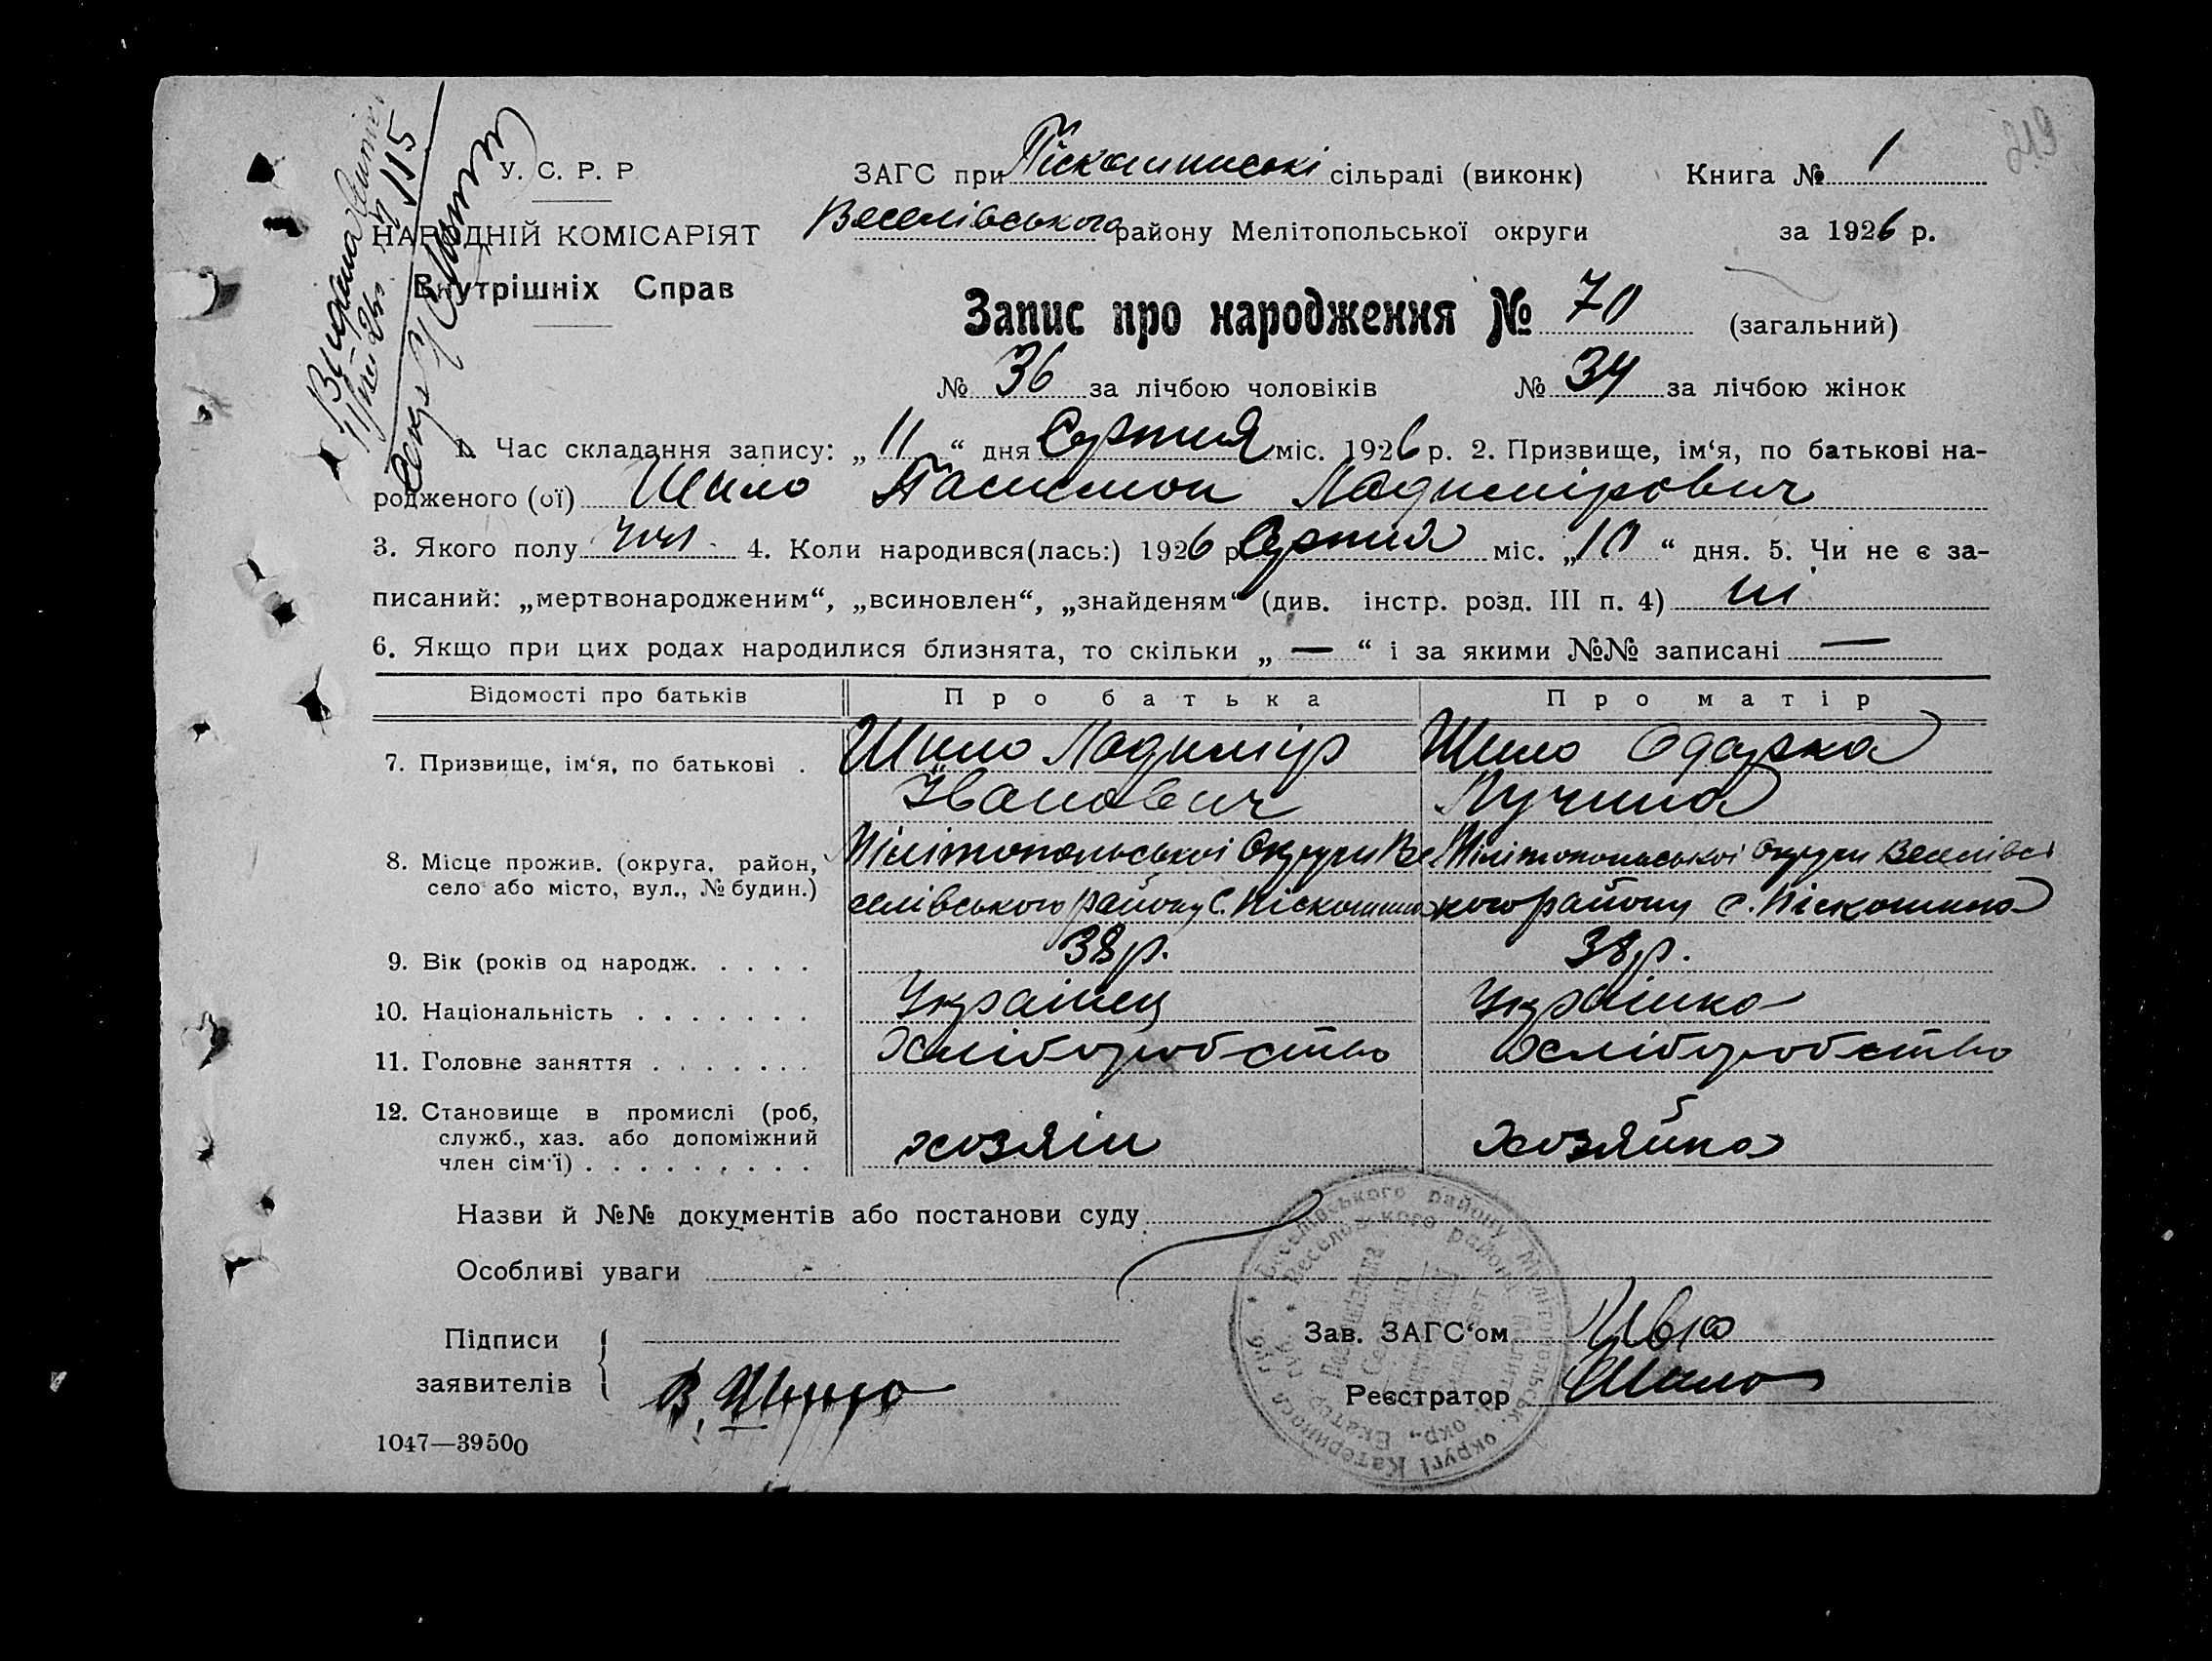 219
У. С. Р. Р
НАРОДНІЙ КОМІСАРІЯТ
Внутрішніх Справ
№ 115
ЗАГС при Піскошинські сільраді (виконк) Книга № 1
Веселівського району Мелітопольської округи за 1926 р.
Запис про народження № 70 (загальний)
№ 36 за лічбою чоловіків № 34 за лічбою жінок
1. Час складання запису: „ 11 “ дня Серпня міс. 1926 р. 2. Призвище, ім‘я, по батькові на-
родженого (ої) Шило Ладимірович
3. Якого полу чол. 4. Коли народився(лась:) 1926 р. Серпня міс. „ 10 “ дня. 5. Чи не є за-
писаний: „мертвонародженим“, „всиновлен“, „знайденям“ (див. інстр. розд. III п. 4) ні
6. Якщо при цих родах народилися близнята, то скільки „ — “ і за якими №№ записані —
Відомості про батьків Про батька Про матір
7. Призвище, ім‘я, по батькові . Шило Ладимір Шило Одарка
Іванович Лучина
8. Місце прожив. (округа, район, Мілітопольської Округи Ве Мілітопольської Округи Веселівсь
село або місто, вул., № будин.) селівського району С. Піскошино кого району с. Піскошино
9. Вік (років од народж. . . . . 38 р. 38 р.
10. Національність . . . . . . . Українец Українка
11. Головне заняття . . . . . . . Хліборобство Хліборобство
12. Становище в промислі (роб,
служб., хаз. або допоміжний хозяін хозяйка
член сім‘ї) . . . . . . . . .
Назви й №№ документів або постанови суду
Особливі уваги
Підписи Зав. ЗАГС‘ом
заявителів В. Шило Реєстратор Шило
1047—39500
Веселівського району Мелітопольськ. округі Катериносл. губ.